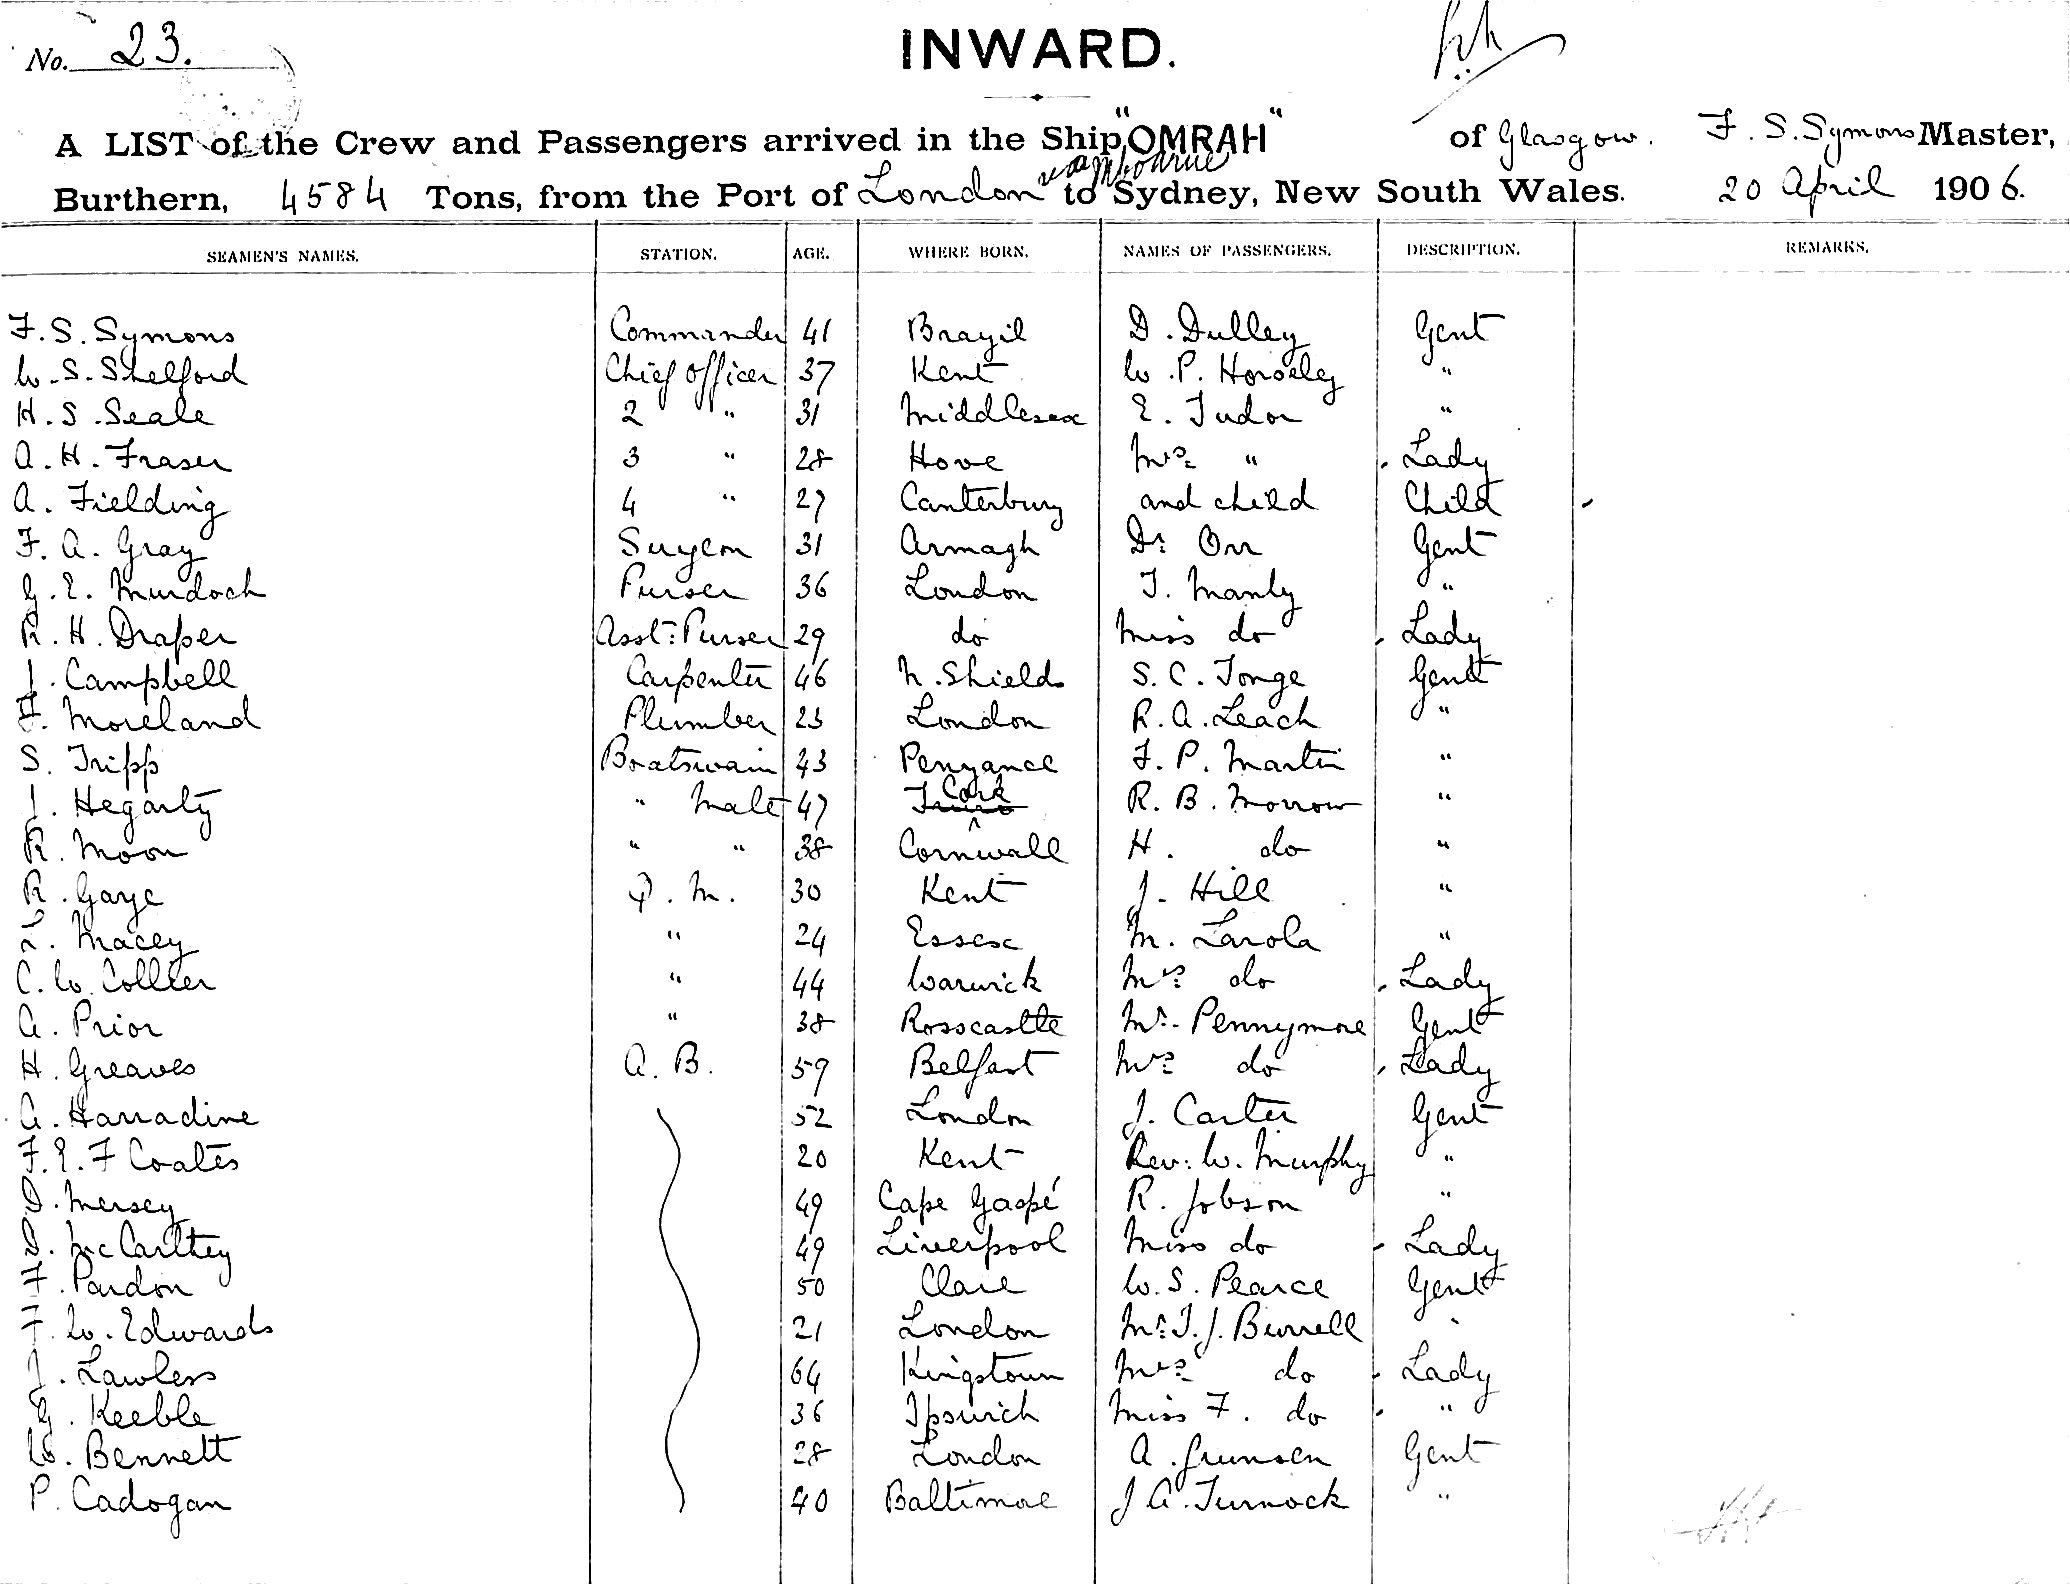 No. 23.
INWARD.
A LIST of the Crew and Passengers arrived in the Ship "OMRAH" of Glasgow. F. S. Symons Master,
Burthern, 4584 Tons, from the Port of London to Sydney, New South Wales. 20 April 1906.
SEAMEN'S NAMES. STATION. AGE. WHERE BORN. NAMES OF PASSENGERS. DESCRIPTION. REMARKS.
F. S. Symons Commander 41 Brazil D. Dulley Gent
W. S. Shelford Chief Officer 37 Kent W. P. Horseley "
H. S. Seale 2 " 31 Middlesex E. Tudor "
A. H. Fraser 3 " 28 Hove Mrs. " Lady
A. Fielding 4 " 27 Canterbury and child Child
F. A. Gray Surgeon 31 Armagh Dr. Orr Gent
G. E. Murdoch Purser 36 London T. Manly "
R. H. Draper Asst. Purser 29 do Miss do Lady
J. Campbell Carpenter 46 N. Shields S. C. Tonge Gent
F. Moreland Plumber 25 London R. A. Leach "
S. Tripp Boatswain 43 Penzance F. P. Martin "
J. Hegarty " Mate 47 Cork R. B. Morrow "
R. Moon " " 38 Cornwall H. do "
R. Gaze Q. M. 30 Kent J. Hill "
L. Macey " 24 Essex M. Larola "
C. W. Collier " 44 Warwick Mrs. do Lady
A. Prior " 38 Rosscastle Mr. Pennymore Gent
H. Greaves A. B. 59 Belfast Mrs. do Lady
A. Harradine 52 London J. Carter Gent
F. E. F Coates 20 Kent Rev. W. Murphy "
D. Mersey 49 Cape Gaspé R. Jobson "
D. McCarthey 49 Liverpool Miss do Lady
F. Pardon 50 Clare W. S. Pearce Gent
F. W. Edwards 21 London Mr. T. J. Burrell "
J. Lawless 64 Kingstown Mrs. do Lady
G. Keeble 36 Ipswich Miss F. do "
W. Bennett 28 London A. Grunsen Gent
P. Cadogan 40 Baltimore J A. Turnock "